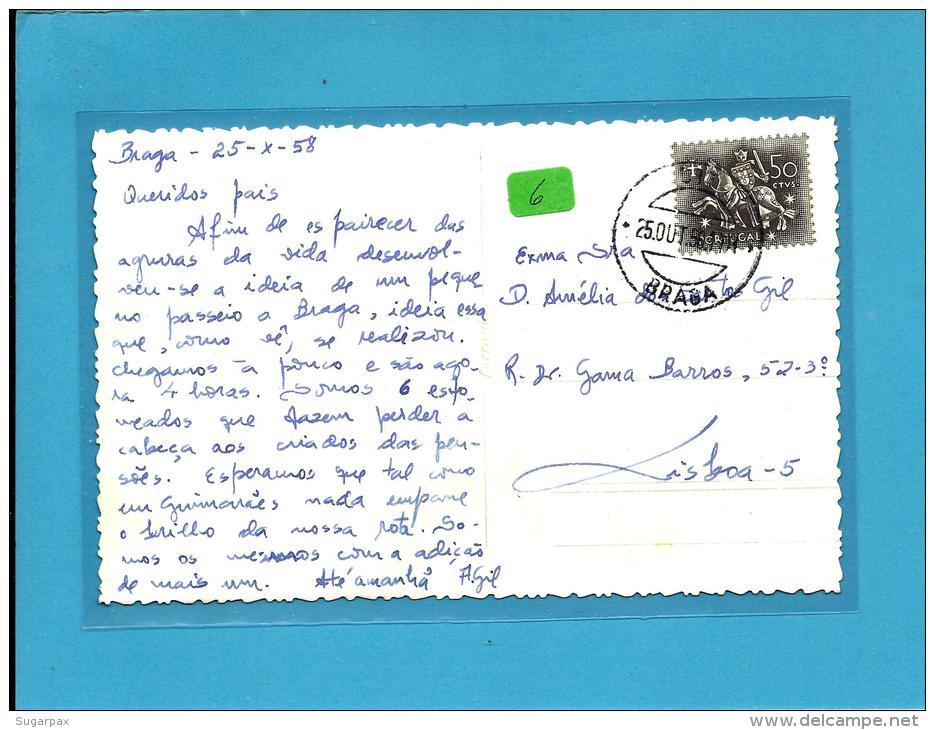 Braga - 25-X-58
Queridos pais
Afim de espairecer das
agruras da vida desenvol-
veu-se a ideia de um peque
no passeio a Braga, ideia essa
que, como vê, se realizou.
chegamos à pouco e são ago-
ra 4 horas. Somos 6 esfo-
meados que fazem perder a
cabeça aos criados das pen-
sões. Esperamos que tal como
em Guimarães nada empane
o brilho da nossa rota. So-
mos os mesmos com a adição
de mais um. Até àmanhã A.Gil
6
50
CTVS.
PORTUGAL
25.OUT.58
BRAGA
Exma Sra
D. Amélia Gil
R. Dr. Gama Barros, 52-3º
Lisboa-5
Sugarpax
www.delcampe.net